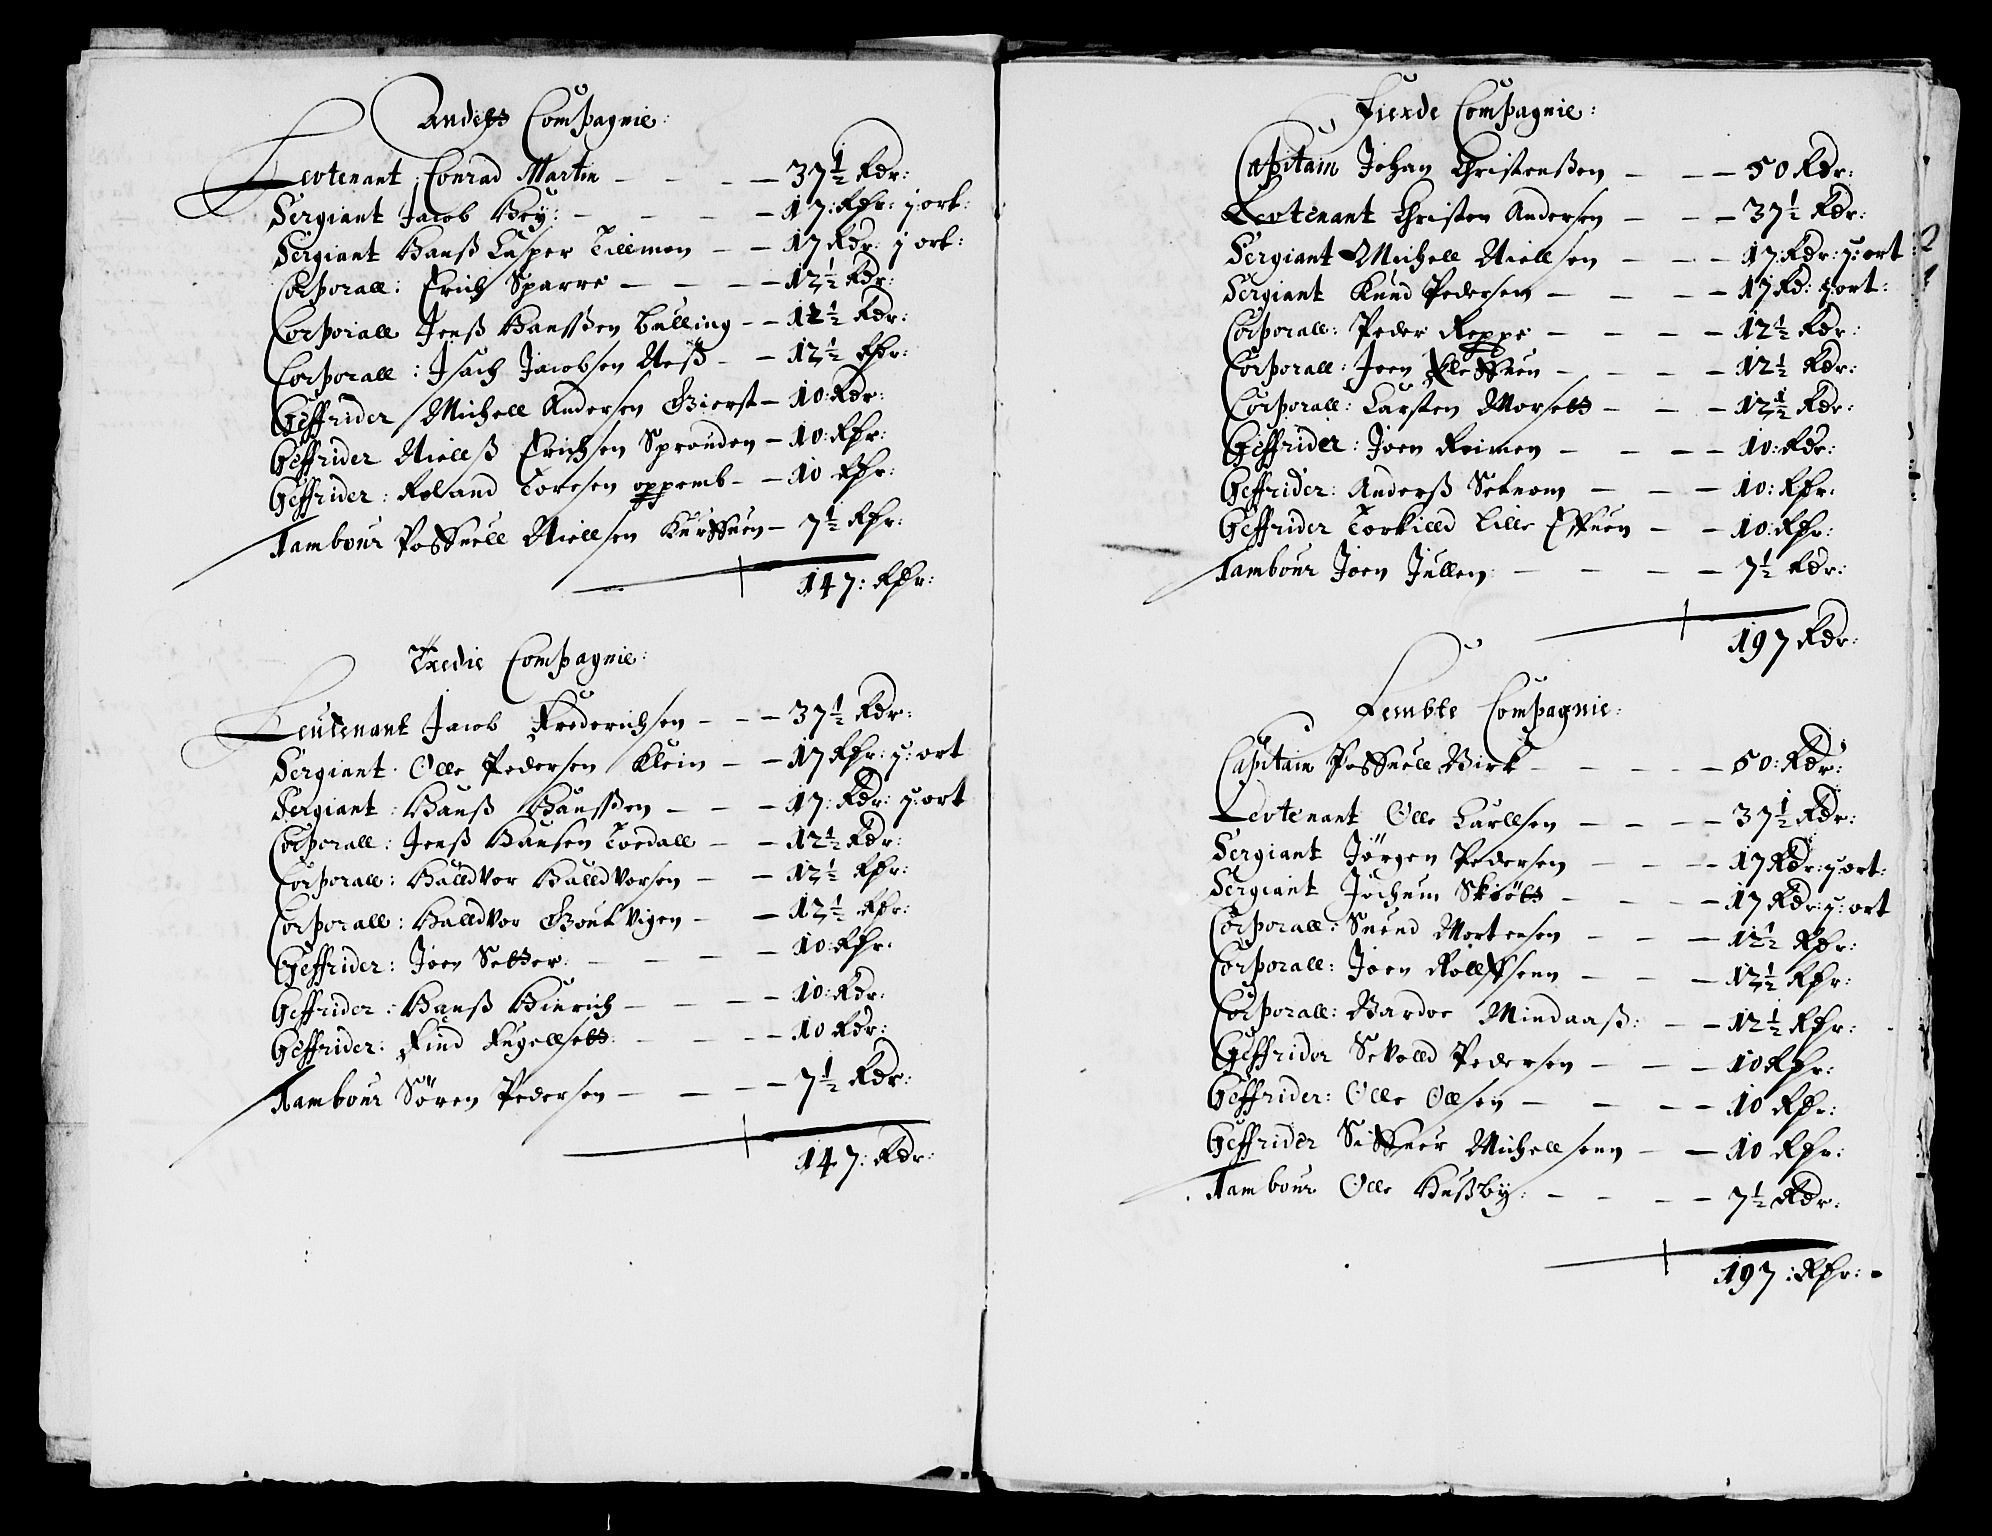 Andets Compagnie:
Levtenant Conrad Martin — 37½ Rdr:
Sergiant Jacob Bey: — 17: Rdr: j: ort:
Sergiant Hanß Casper Tillemen — 17 Rdr: j ort:
Corporall: Erich Sparre — 12½ Rdr:
Corporall Jenß Hanssen Balling — 12½ Rdr:
Corporall: Isach Jacobsen Neß — 12½ Rdr:
Geffrider Michell Andersen Gierst — 10: Rdr:
Geffrider Nielß Erichsen Sprouden — 10: Rdr:
Geffrider: Roland Toresen oppemb — 10 Rdr:
Tambour Possuell Niellsen — 7½ Rdr:
147: Rdr:
Tredie Compagnie:
Leutenant Jacob Frederichsen — 37½ Rdr:
Sergiant Olle Pedersen Klein — 17 Rdr: j: ort
Sergiant: Hanß Hanssen — 17: Rdr: j: ort
Corporall: Jenß Hansen Toedall — 12½ Rdr:
Corporall: Halldvor Halldvorsen — 12½ Rdr:
Corporall: Halldvor Boukvigen — 12½ Rdr:
Geffrider: Joen Setter: — 10: Rdr:
Geffrider: Hanß Hinrich — 10: Rdr:
Geffrider: Find Fugellsets — 10 Rdr:
Tambour Sören Pedersen — 7½ Rdr:
147: Rdr:
Fierde Compagnie:
Capitain Johan Christenßen — 50 Rdr:
Levtenant Christen Andersen — 37½ Rdr:
Sergiant Michell Niellsen — 17: Rdr: j: ort
Sergiant Knud Pedersen — 17 Rd: j: ort:
Corporall: Peder Reppe — 12½ Rdr:
Corporall: Joen — 12½ Rdr:
Corporall: Carsten Morsets — 12½ Rdr:
Geffrider: Joen Reimen — 10: Rdr:
Geffrider: Anderß Setnom — 10: Rdr:
Geffrider Torkilld Lille — 10: Rdr:
Tambour Joen Jullem: — 7½ Rdr:
197 Rdr:
Fembte Compagnie:
Capitain Possuell Birk — 50: Rdr:
Levtenant Olle Carllsen — 37½ Rdr:
Sergiant Jörgen Pedersen — 17 Rdr: j: ort:
Sergiant Jochum Skiöts — 17 Rdr: j: ort
Corporall: Suend Mortensen — 12½ Rdr:
Corporall: Joen Rollffsenn — 12½ Rdr:
Corporall: Bardoe Mindaaß: — 12½ Rdr:
Geffrider Sevolld Pedersen — 10 Rdr:
Geffrider: Olle Ollsen — 10 Rdr:
Geffrider Michellsenn — 10 Rdr:
Tambour Olle Hußby: — 7½ Rdr:
197: Rdr: